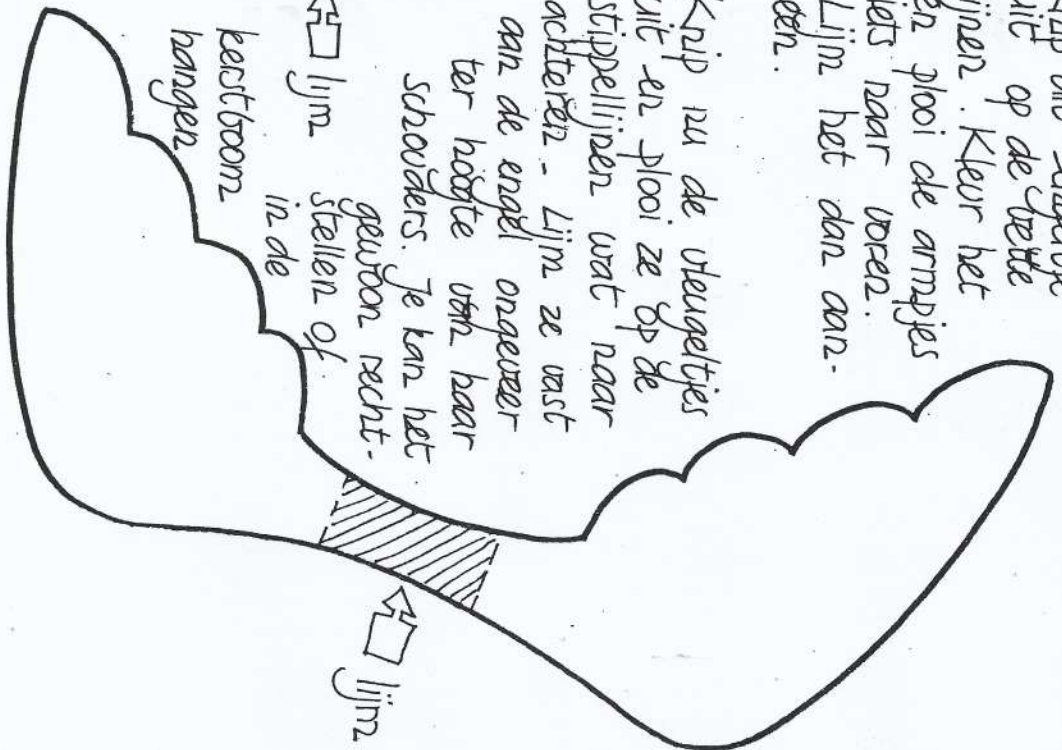 dit engeltje
uit op de vette
lijnen. Kleur het
en plooi de armpjes
iets naar voren.
Lijm het dan aan-
een.
Knip nu de vleugeltjes
uit en plooi ze op de
stippellijnen wat naar
achteren - Lijm ze vast
aan de engel ongeveer
ter hoogte van haar
schouders. Je kan het
gewoon recht-
stellen of
in de
kerstboom
hangen
lijm
lijm